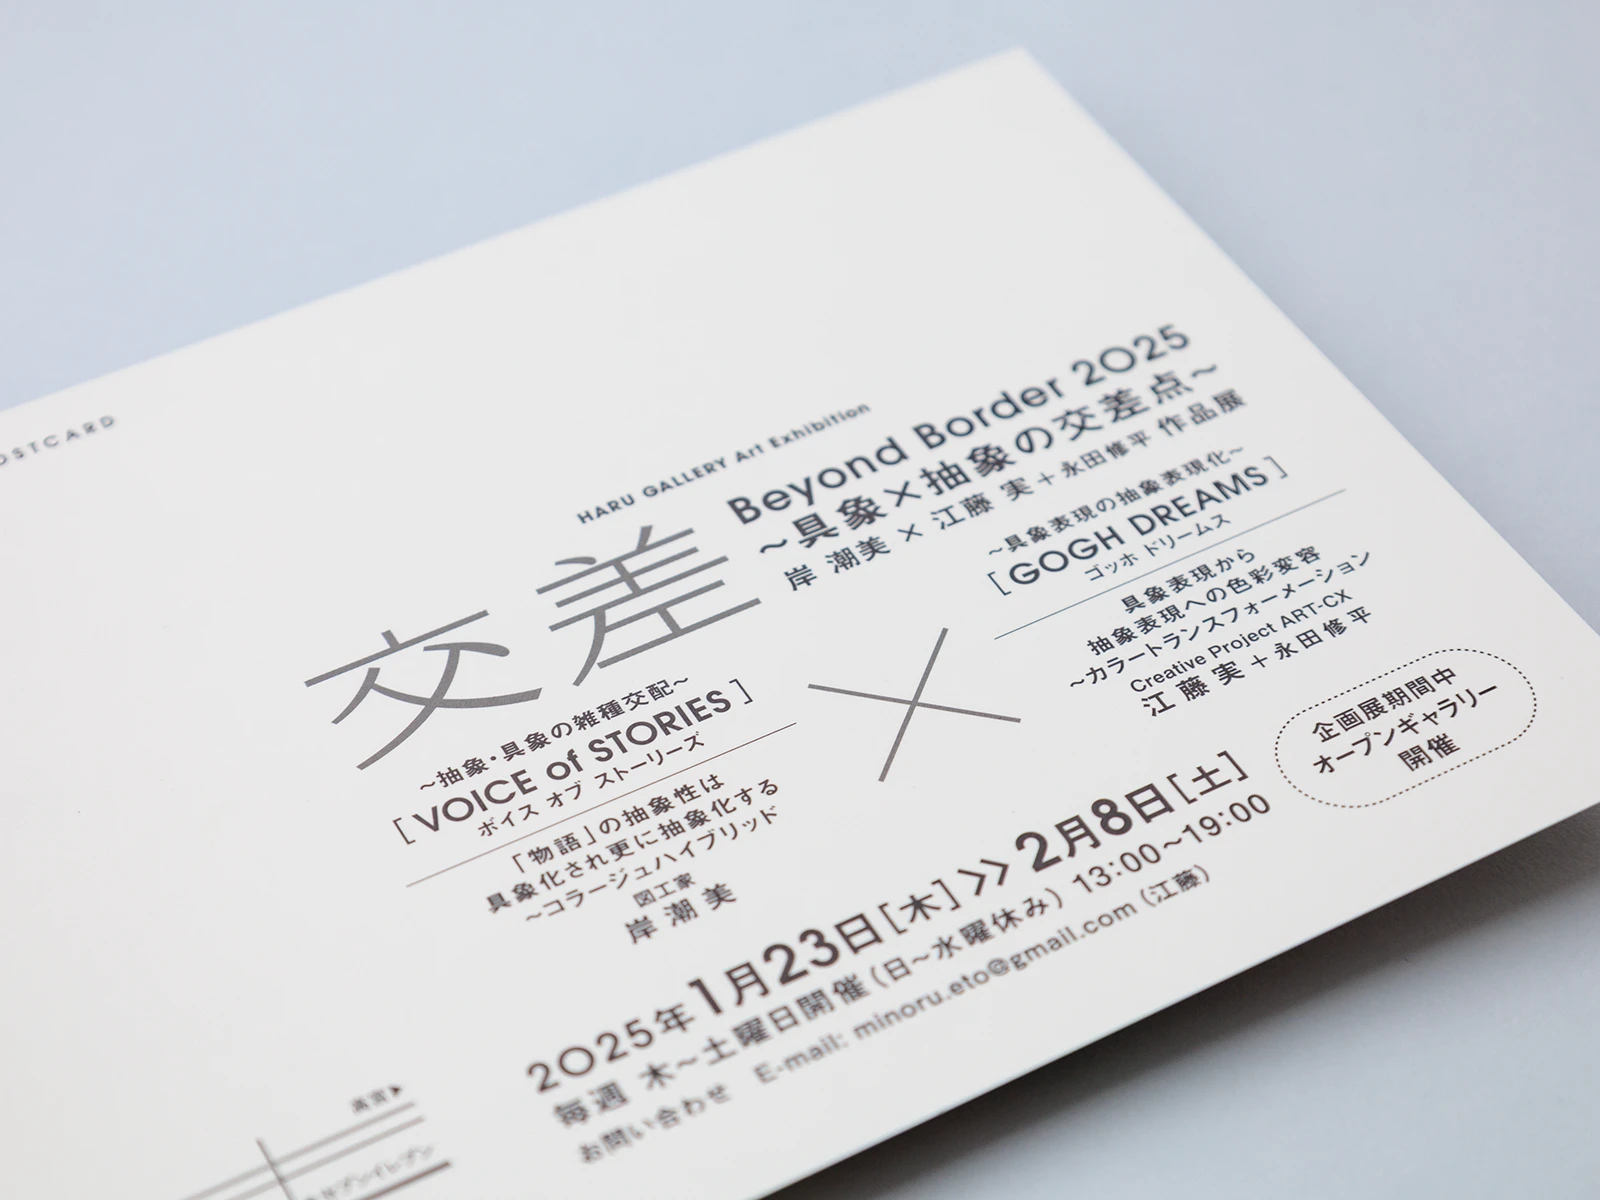 POSTCARD
HARU GALLERY Art Exhibition
交差
Beyond Border 2025
〜具象×抽象の交差点〜
岸 潮美 × 江藤 実 + 永田修平 作品展
〜抽象・具象の雑種交配〜
[ VOICE of STORIES ]
ボイス オブ ストーリーズ
「物語」の抽象性は
具象化され更に抽象化する
〜コラージュハイブリッド
図工家
岸 潮 美
×
〜具象表現の抽象表現化〜
[ GOGH DREAMS ]
ゴッホ ドリームス
具象表現から
抽象表現への色彩変容
〜カラートランスフォーメーション
Creative Project ART-CX
江 藤 実 + 永田修平
企画展期間中
オープンギャラリー
開催
2025年 1月23日[木] >> 2月8日[土]
毎週 木〜土曜日開催(日〜水曜休み) 13:00〜19:00
お問い合わせ E-mail: minoru.eto@gmail.com(江藤)
セブンイレブン